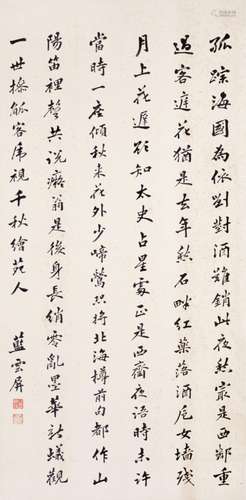 孤踪海國為依劉對酒難銷此夜愁最是西鄰重
過客庭花猶是去年愁石畔紅藥落酒尾女墻殘
月上花遲蹤知太史占星處正是西齋夜語時未許
當時一座傾秋來花外少啼鶯只將北海樽前句都作山
陽笛裡聲共說癯翁是後身長綃零亂墨華新蟻觀
一世操觚客虎視千秋繪苑人
藍雲屏